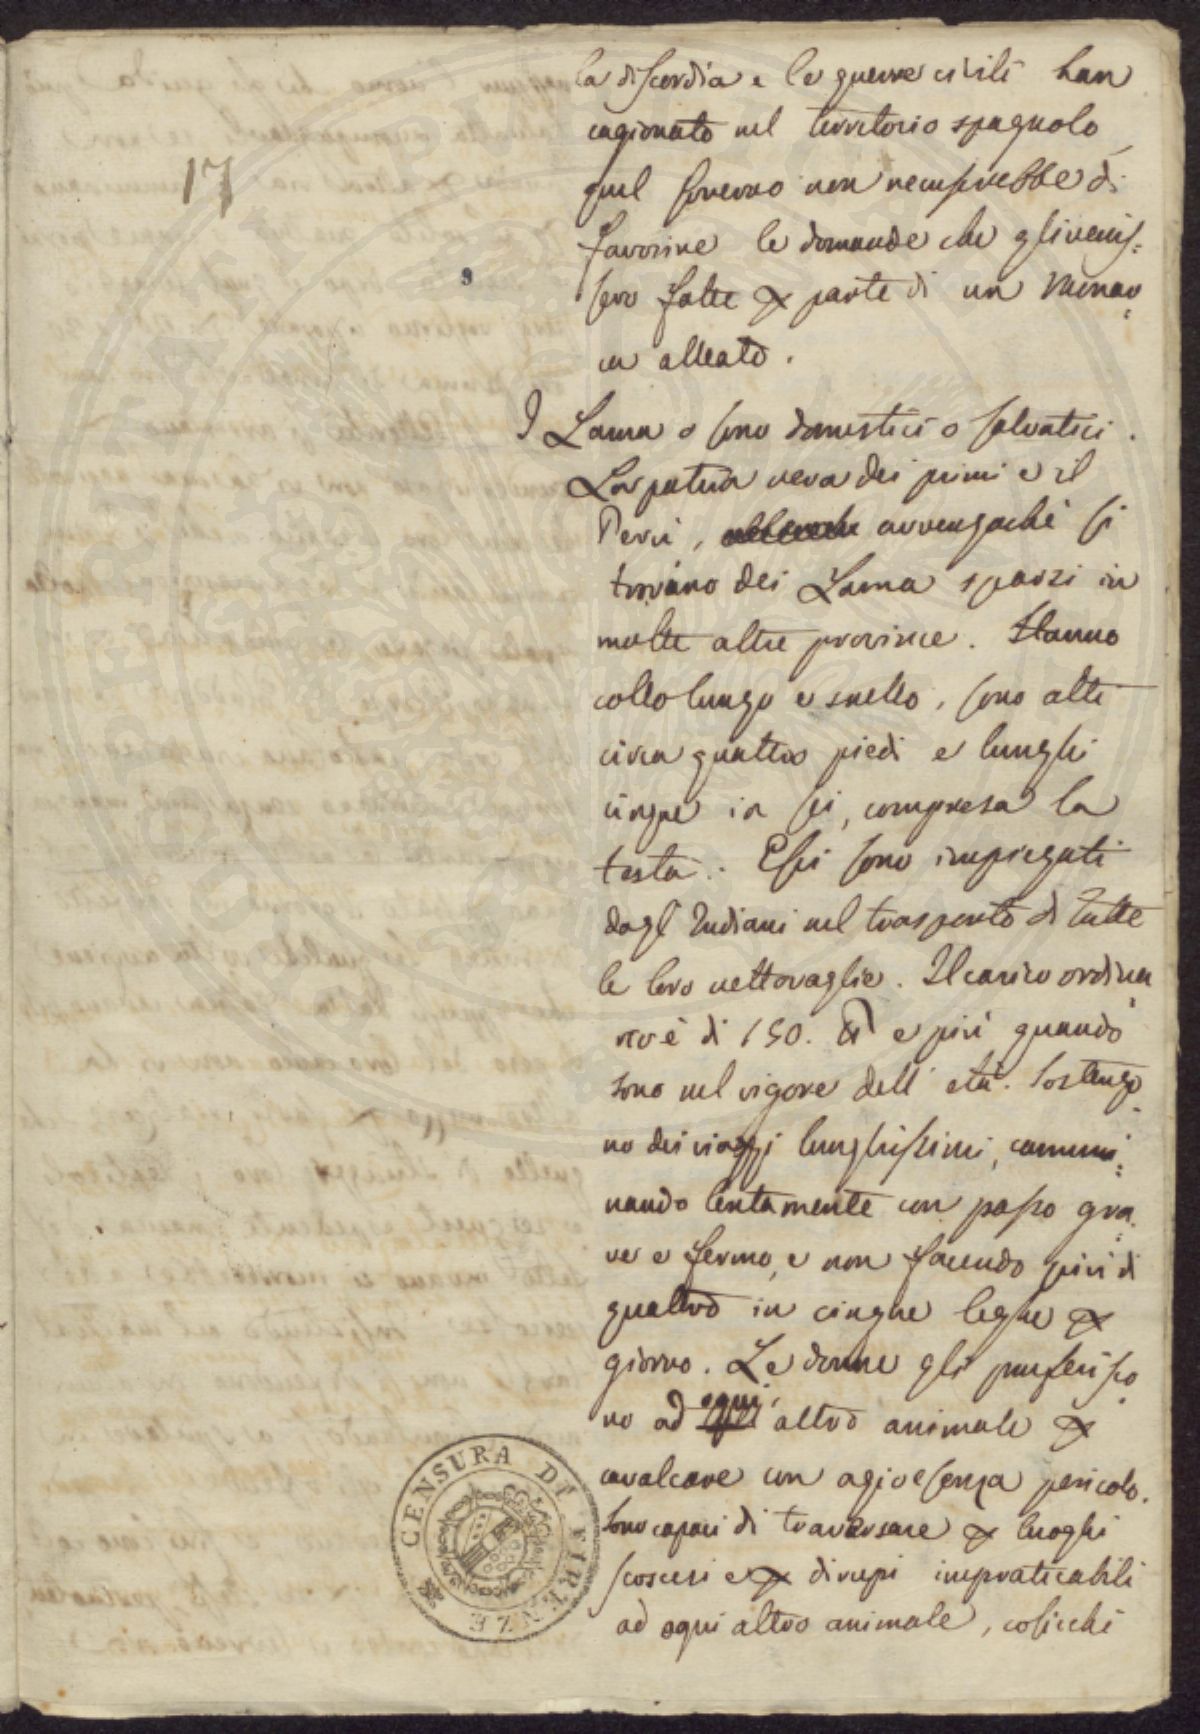 17
9
la discordia e le guerre civili han
cagionato nel territorio spagnolo,
quel Governo non recuserebbe di
favorire le domande che glivenis=
sero fatte per parte di un Monar=
ca alleato.
I Lama o sono domestici o salvatici.
La patria vera dei primi e il
Perù, avvengachè si
trovano dei Lama sparsi in
molte altre provincie. Hanno
collo lungo e snello, sono alti
circa quattro piedi e lunghi
cinque in sei, compresa la
testa. Essi sono impiegati
dagl' Indiani nel trasporto di tutte
le loro vettovaglie. Il carico ordina=
rio è di 150. e più quando
sono nel vigore dell' età. Sostengo=
no dei viaggj lunghissimi, cammi=
nando lentamente con passo gra=
ve e fermo, e non facendo più di
quattro in cinque leghe per
giorno. Le donne gli preferisco=
no ad ogni altro animale per
cavalcare con agio e senza pericolo.
Sono capaci di traversare per luoghi
scoscesi e per dirupi impraticabili
ad ogni altro animale, cosicchè
CENSURA DI FIRENZE